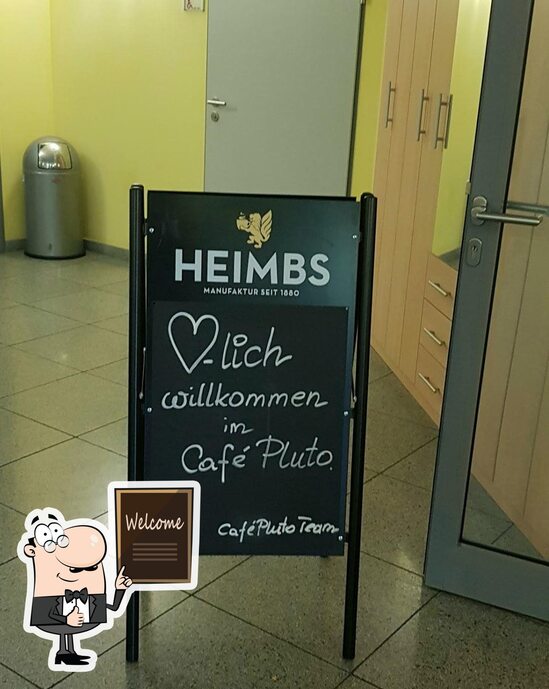 HEIMBS
MANUFAKTUR SEIT 1880
♡-lich
willkommen
im
Café Pluto.
Café Pluto Team
Welcome